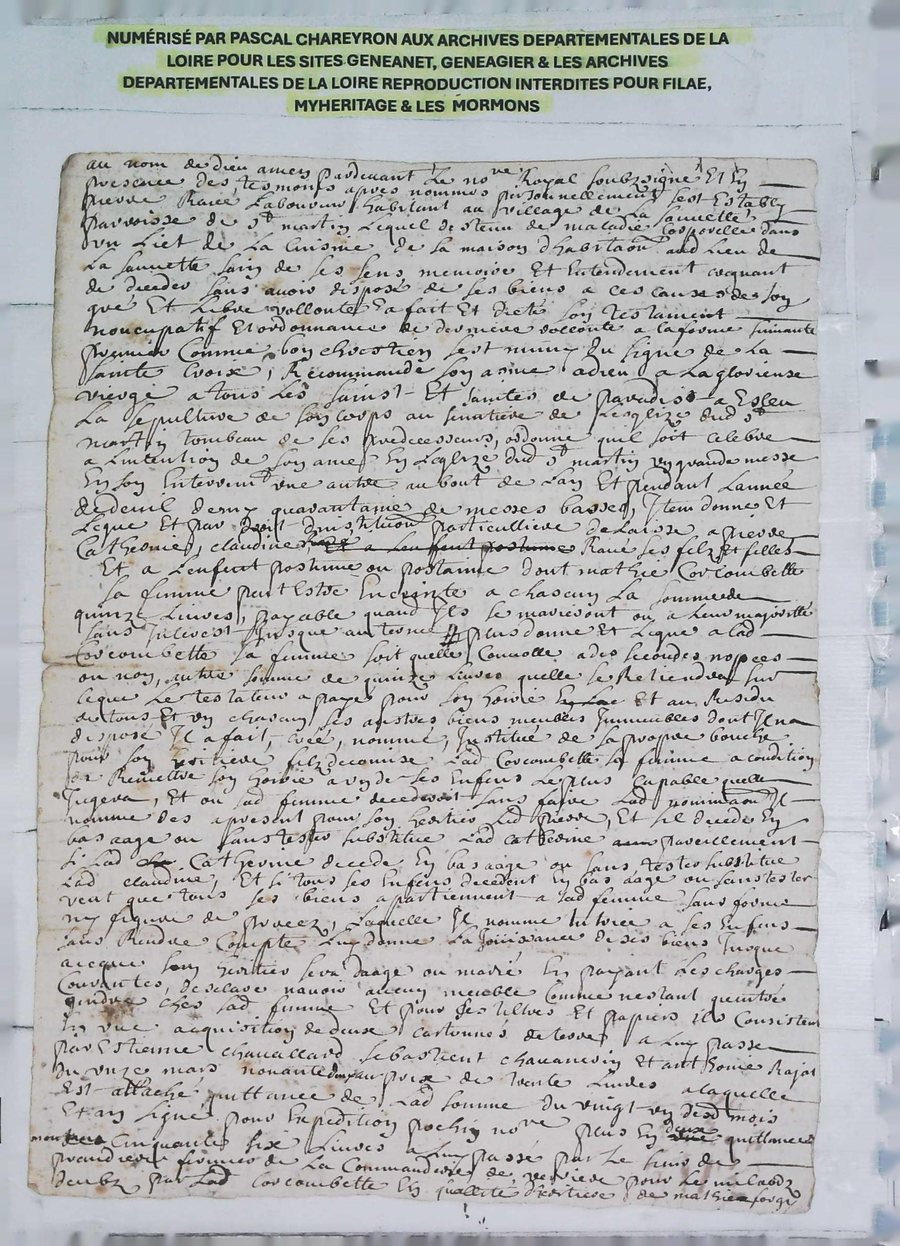 NUMÉRISÉ PAR PASCAL CHAREYRON AUX ARCHIVES DEPARTEMENTALES DE LA
LOIRE POUR LES SITES GENEANET, GENEAGIER & LES ARCHIVES
DEPARTEMENTALES DE LA LOIRE REPRODUCTION INTERDITES POUR FILAE,
MYHERITAGE & LES MORMONS
au nom de dieu amen pardevant le no.re Royal soubzsigné Et En
presence des tesmoins apres nommés personnellement sest Estably
pierre Raue Laboureur habitant au village de La sauuette
parroisse de st martin Lequel detenu de maladie corporelle dans
un Lict de La Cuisine de sa maison dhabitaon aud Lieu de
La sauuette sain de ses sens memoire Et Entendement craignant
de deceder sans auoir disposé de ses biens a ces causes de son
gré Et Libre vollonté a fait Et dicté son testament
noncupatif Et ordonnance de derniere vollonté a la forme suiuante
premier Comme bon chrestien sest muny du signe de La
sainte Croix, Recommandé son ame a dieu a La glorieuse
vierge a tous Les saints Et saintes de paradis a Esleu
La sepulture de son corps au simetiere de Lesglize dud st
martin tombeau de ses predecesseurs, ordonne quil soit celebré
a Lintention de son ame En Leglize dud st martin un grande messe
En son Enterremt une autre au bout de Lan Et pendant Lannée
de deuil demy quarantaine de messes basses, Item donne Et
Legue Et par droit dinstitution particulliere delaisse a pierre
Catherine, claudine Raue ses filz Et filles
Et a Lenfent postume ou postume dont mathie Corcombette
sa femme peut Estre Enceinte a chascun La somme de
quinze Liures, payable quand Ils se marieront ou a Leur majorité
sans Interest jusque au terme plus donne Et Legue a Lad
Corcombette sa femme soit quelle Conuolle a des secondes nopces
ou non, autre somme de quinze Liures quelle se Retiendra sur
ce que Le testateur a payé pour son hoirie Et au Residu
de tous Et un chascun ses autres biens meubles Immeubles dont Il na
disposé Il a fait, creé, nommé, Institué de sa propre bouche
pour son heritiere Lad Corcombette sa femme a condition
de Remettre son hoirie a un de ses Enfens Le plus Capable quelle
Jugera, Et ou Lad femme decederoit sans faire Lad nominaon Il
nomme des a present pour son heritier Led pierre, Et sil decede En
bas aage ou sans tester substitue Lad Catherine pareillement
si Lad Catherine decede En bas aage ou sans tester substitue
Lad claudine, Et si tous ses Enfens decedent En bas aage ou sans tester
veut que tous ses biens apartiennent a Lad femme sans forme
ny figure de procez, Laquelle Il nomme tutrice a ses Enfens
sans Rendre Compte Luy donne La Jouissance de ses biens Jusque
a ce que son heritier sera daage ou marié En payant Les charges
Courantes, desclare nauoir aucun meuble Comme nestant quentré
gendre ches Lad femme Et pour ses tiltres Et papiers ils Consistent
En une acquisition de deux cartonnes de terre a Luy passé
par Estienne chauallard sebastient Et anthoine Rajat
du unze mars nonante deux au prix de trente Liures a laquelle
Est attaché quittance de Lad somme du vingt un desd mois
Et an signé pour Expedition pochin no.re plus En deux quittances
Cinquante six Liures a Luy passé par Le sieur de
fermier de La Commanderie de verriere pour Le
deubz par Lad Corcombette En quallité dheritiere de mathieu